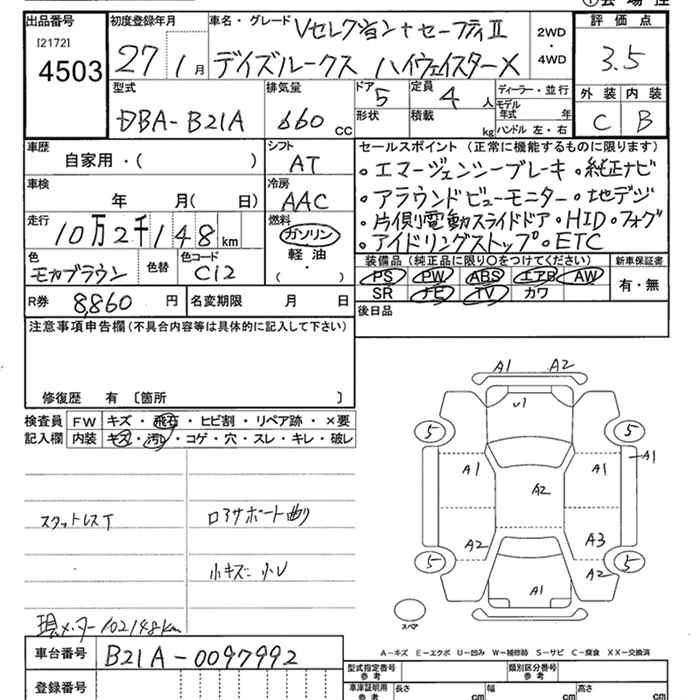 出品番号
[2172]
4503
初度登録年月
27年 1月
車名・グレード
Vセレクション+セーフティII
デイズルークス ハイウェイスターX
2WD
・
4WD
評価点
3.5
外装 内装
C B
型式
DBA-B21A
排気量
660 cc
ドア
5
定員
4 人
形状
積載
kg
ディーラー・並行
モデル年式 年
ハンドル 左・右
車歴
自家用・( )
シフト
AT
車検
年 月( 日)
冷房
AAC
走行
10万2千148km
燃料
ガソリン
軽油
・
( )
色
モカブラウン
色替
色コード
C12
R券 8,860 円
名変期限 月 日
セールスポイント (正常に機能するものに限ります)
・エマージェンシーブレーキ・純正ナビ
・アラウンドビューモニター・地デジ
・片側電動スライドドア・HID・フォグ
・アイドリングストップ・ETC
装備品 (純正品に限り○をつけてください)
PS PW ABS エアB AW
SR ナビ TV カワ
新車保証書
有・無
後日品
注意事項申告欄(不具合内容等は具体的に記入して下さい)
修復歴 有 〔箇所 〕
検査員
記入欄
FW キズ・飛石・ヒビ割・リペア跡・×要
内装 キズ・汚レ・コゲ・穴・スレ・キレ・破レ
スペアットレスT
ロアサポート曲り
小キズ 小U
現メーター102148km
A1 A2
U1
5 5
A1 A1 A1
A2
A2 A3
5 A2 5
A1
スペア
A-キズ E-エクボ U-凹み W-補修跡 S-サビ C-腐食 XX-交換済
車台番号
B21A-0097992
登録番号
型式指定番号
参考
類別区分番号
参考
車庫証明用
参考
長さ cm
幅 cm
高さ cm